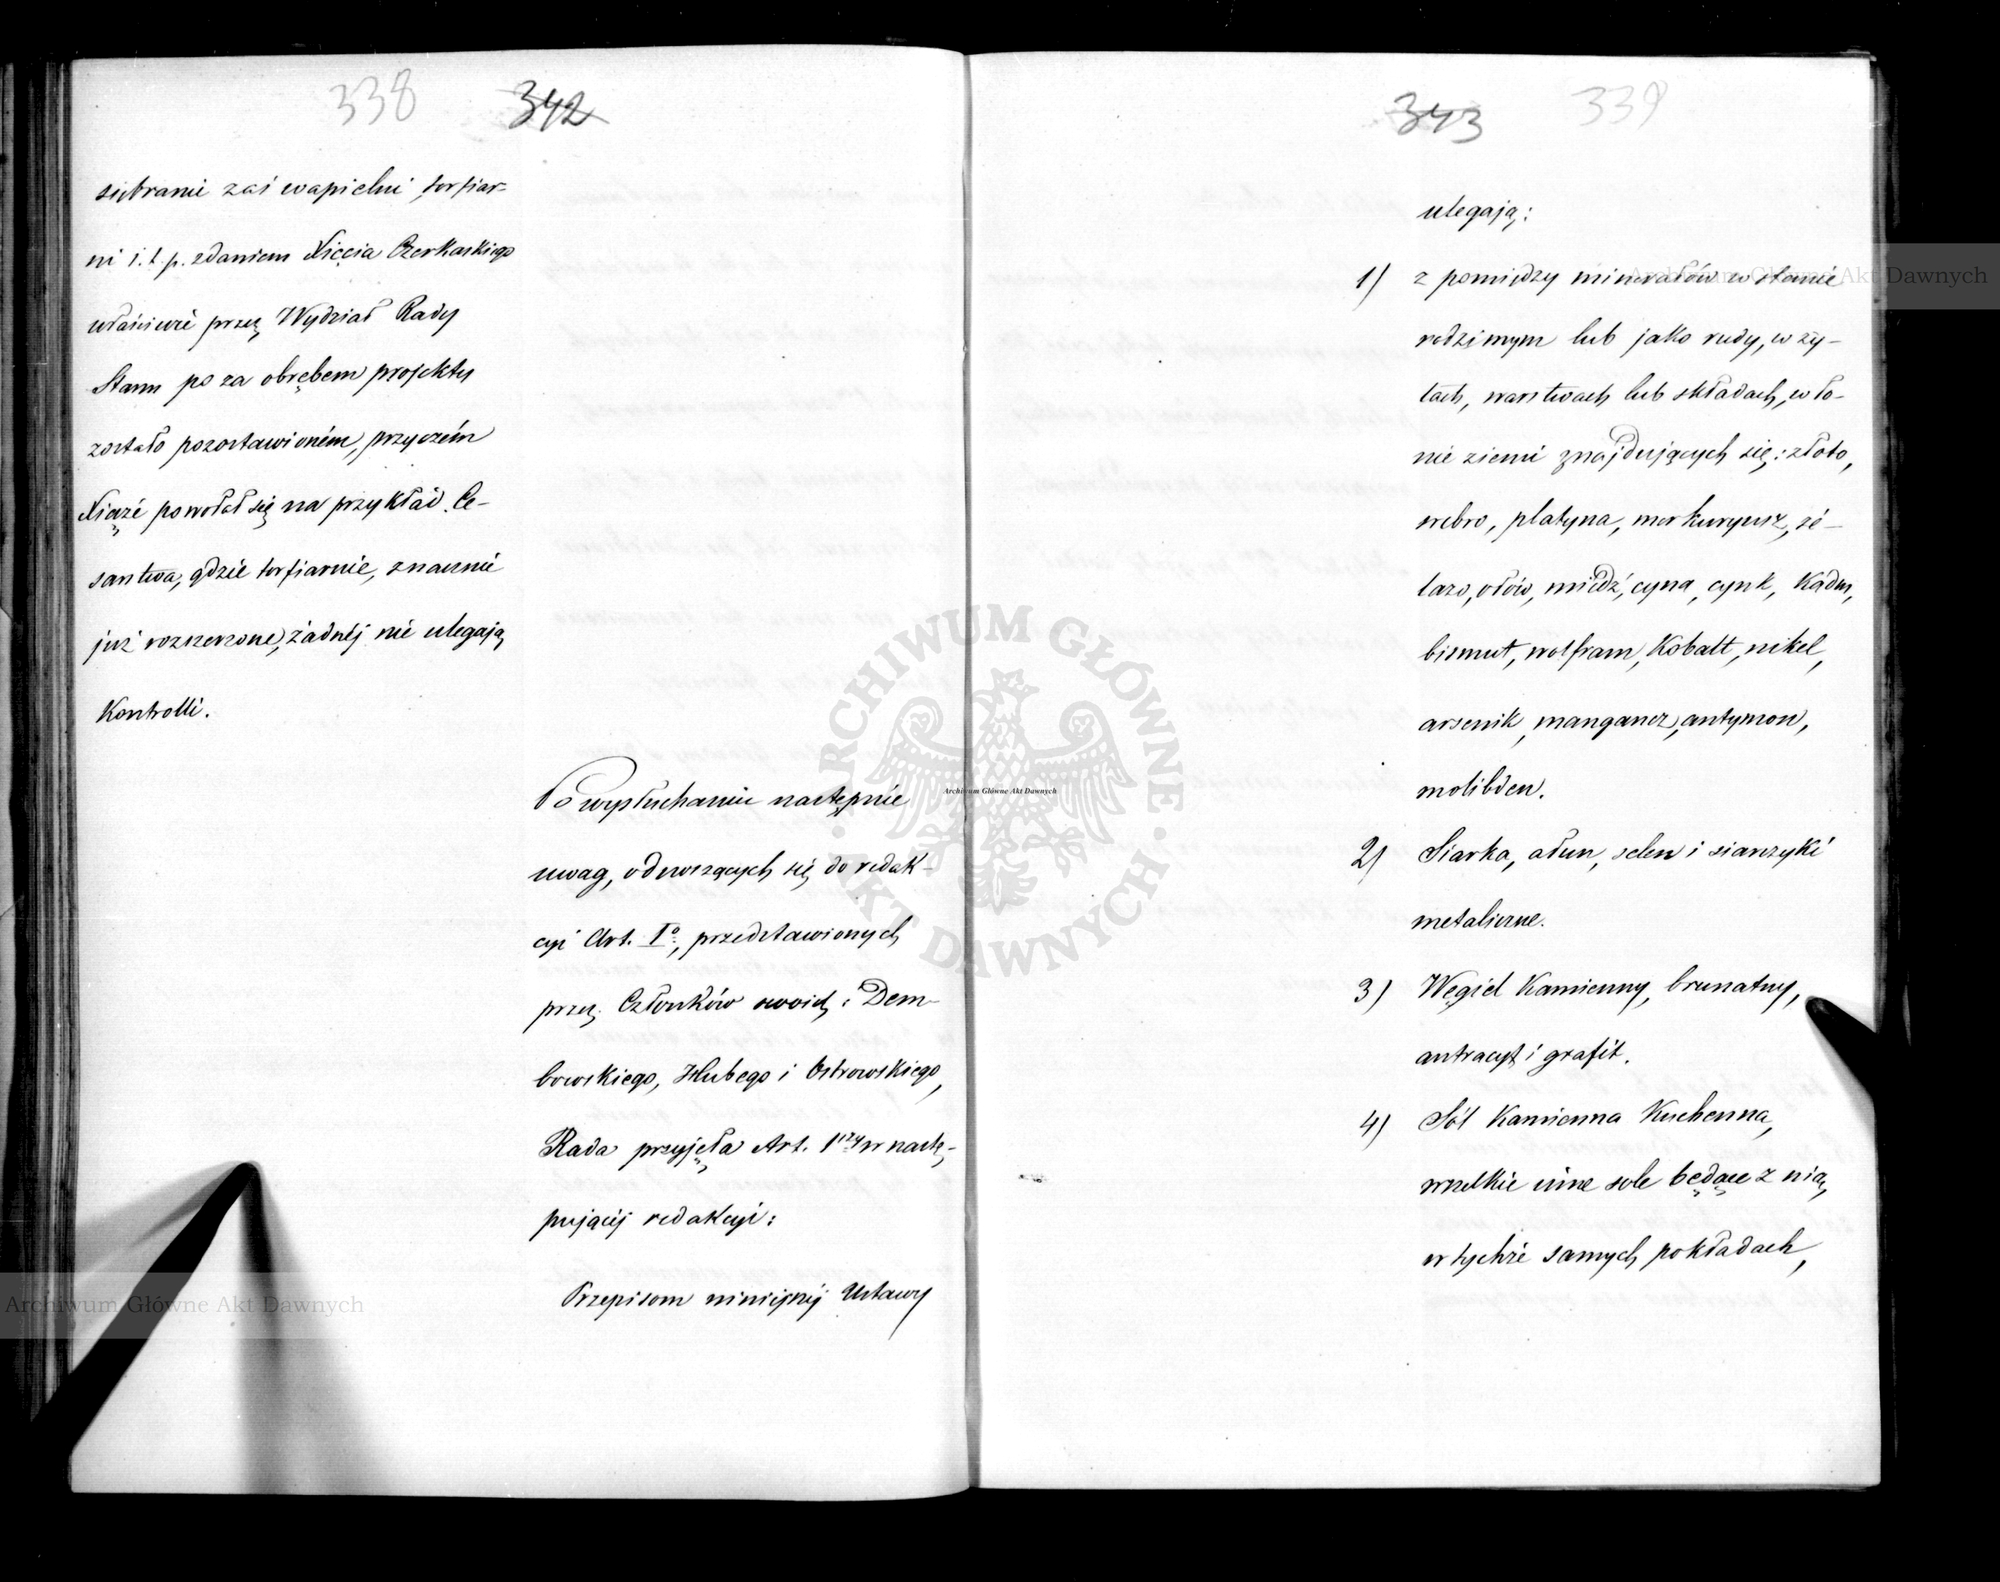 338 342
siębranie zaś wapielni, torfiar-
ni i.t.p. zdaniem Xięcia Czerkaskiego
właściwie przez Wydział Rady
Stanu po za obrębem projektu
zostało pozostawioném, przyczém
Xiąże powołał się na przykład Ce-
sarstwa, gdzie torfiarnie, znacznie
już rozszerzone, żadnéj nie ulegają
Kontrolli.
Po wysłuchaniu następnie
uwag, odnoszących się do redak-
cyi Art. Iº, przedstawionych
przez Członków swoich: Dem-
bowskiego, Hubego i Ostrowskiego,
Rada przyjęła Art. 1szy w nastę-
pującéj redakcyi:
Przepisom niniejszéj Ustawy
343 339
ulegają:
1) z pomiędzy minerałów w stanie
rodzimym lub jako rudy, w ży-
łach, warstwach lub składach, w ło-
nie ziemi znajdujących się: złoto,
srebro, platyna, merkuryusz, że-
lazo, ołów, miedź, cyna, cynk, Kadm,
bismut, wolfram, Kobalt, nikel,
arsenik, manganez, antymon,
molibden.
2) Siarka, ałun, selen i siarczyki
metaliczne.
3) Węgiel Kamienny, brunatny,
antracyt i grafit.
4) Sól Kamienna Kuchenna,
wszelkie inne sole będące z nią,
w tychże samych pokładach,
Archiwum Główne Akt Dawnych
Archiwum Główne Akt Dawnych
Archiwum Główne Akt Dawnych
ARCHIWUM GŁÓWNE · AKT DAWNYCH ·